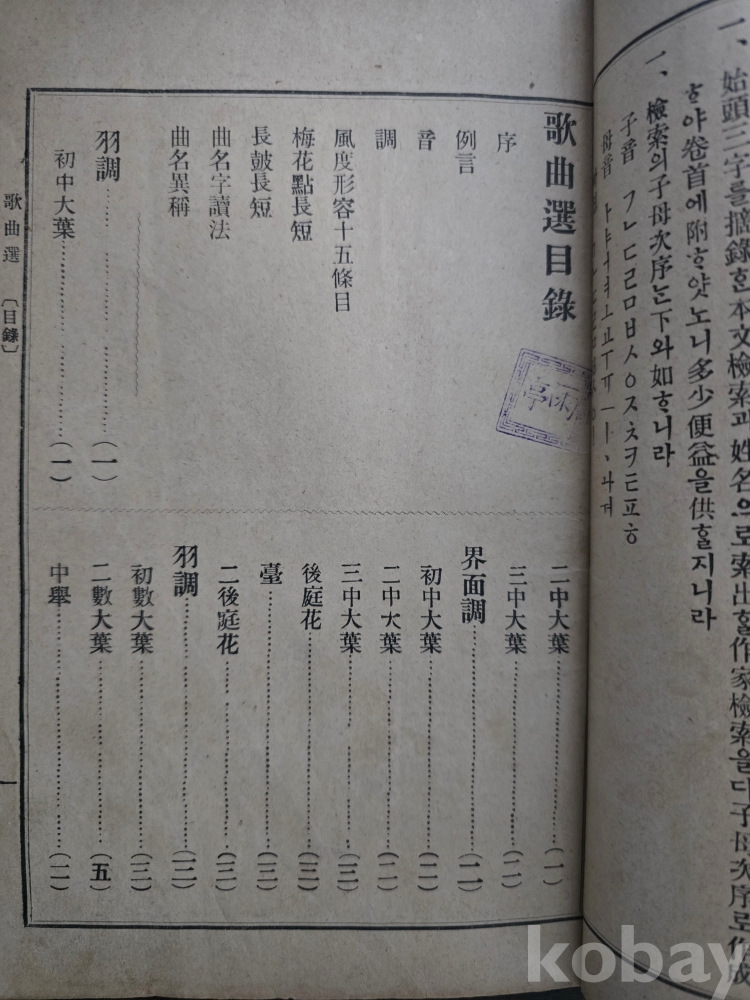 一、始頭三字를摘錄ᄒᆞᆫ本文檢索과姓名으로索出ᄒᆞᆯ作家檢索을다子母次序로作成
ᄒᆞ야卷首에附ᄒᆞ얏노니多少便益을供ᄒᆞᆯ지니라
一、檢索의子母次序ᄂᆞᆫ下와如ᄒᆞ니라
子音 ㄱㄴㄷㄹㅁㅂㅅㅇㅈㅊㅋㅌㅍㅎ
母音 ㅏㅑㅓㅕㅗㅛㅜㅠㅡㅣㆍ
歌曲選目錄
序
例言
音
調
風度形容十五條目
梅花點長短
長鼓長短
曲名字讀法
曲名異稱
羽調……(一)
初中大葉……(一)
二中大葉……(一)
三中大葉……(二)
界面調……(二)
初中大葉……(二)
二中大葉……(二)
三中大葉……(三)
後庭花……(三)
臺……(三)
二後庭花……(三)
羽調……(三)
初數大葉……(三)
二數大葉……(五)
中擧……(一一)
歌曲選 〔目錄〕
一
kobay